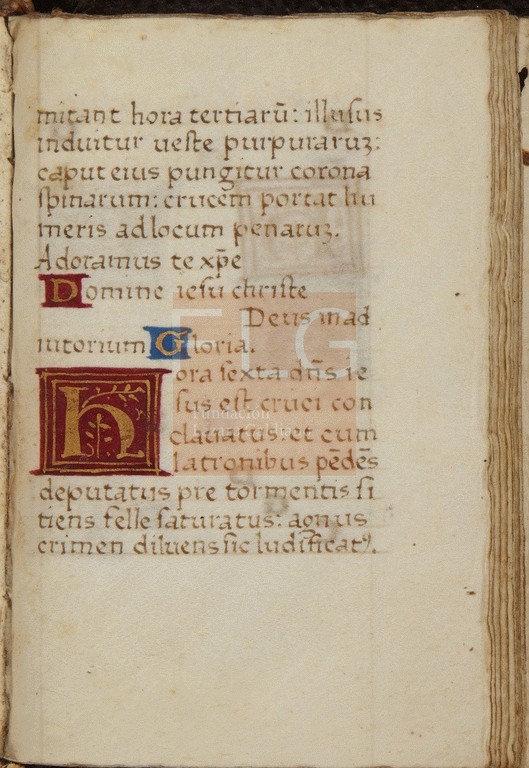 mitant hora tertiarū: illusus
induitur ueste purpuraruʒ:
caput eius pungitur corona
spinarum: crucem portat hu
meris ad locum penaruʒ.
Adoramus te xp̄e
Domine iesu christe
Deus in ad
iutorium Gloria.
Hora sexta dn̄s ie
sus est cruci con
clauatus: et cum
latronibus pēdēs
deputatus pre tormentis si
tiens felle saturatus: agnus
crimen diluens sic ludificatꝰ.
FLG
Fundación
Lázaro Galdiano